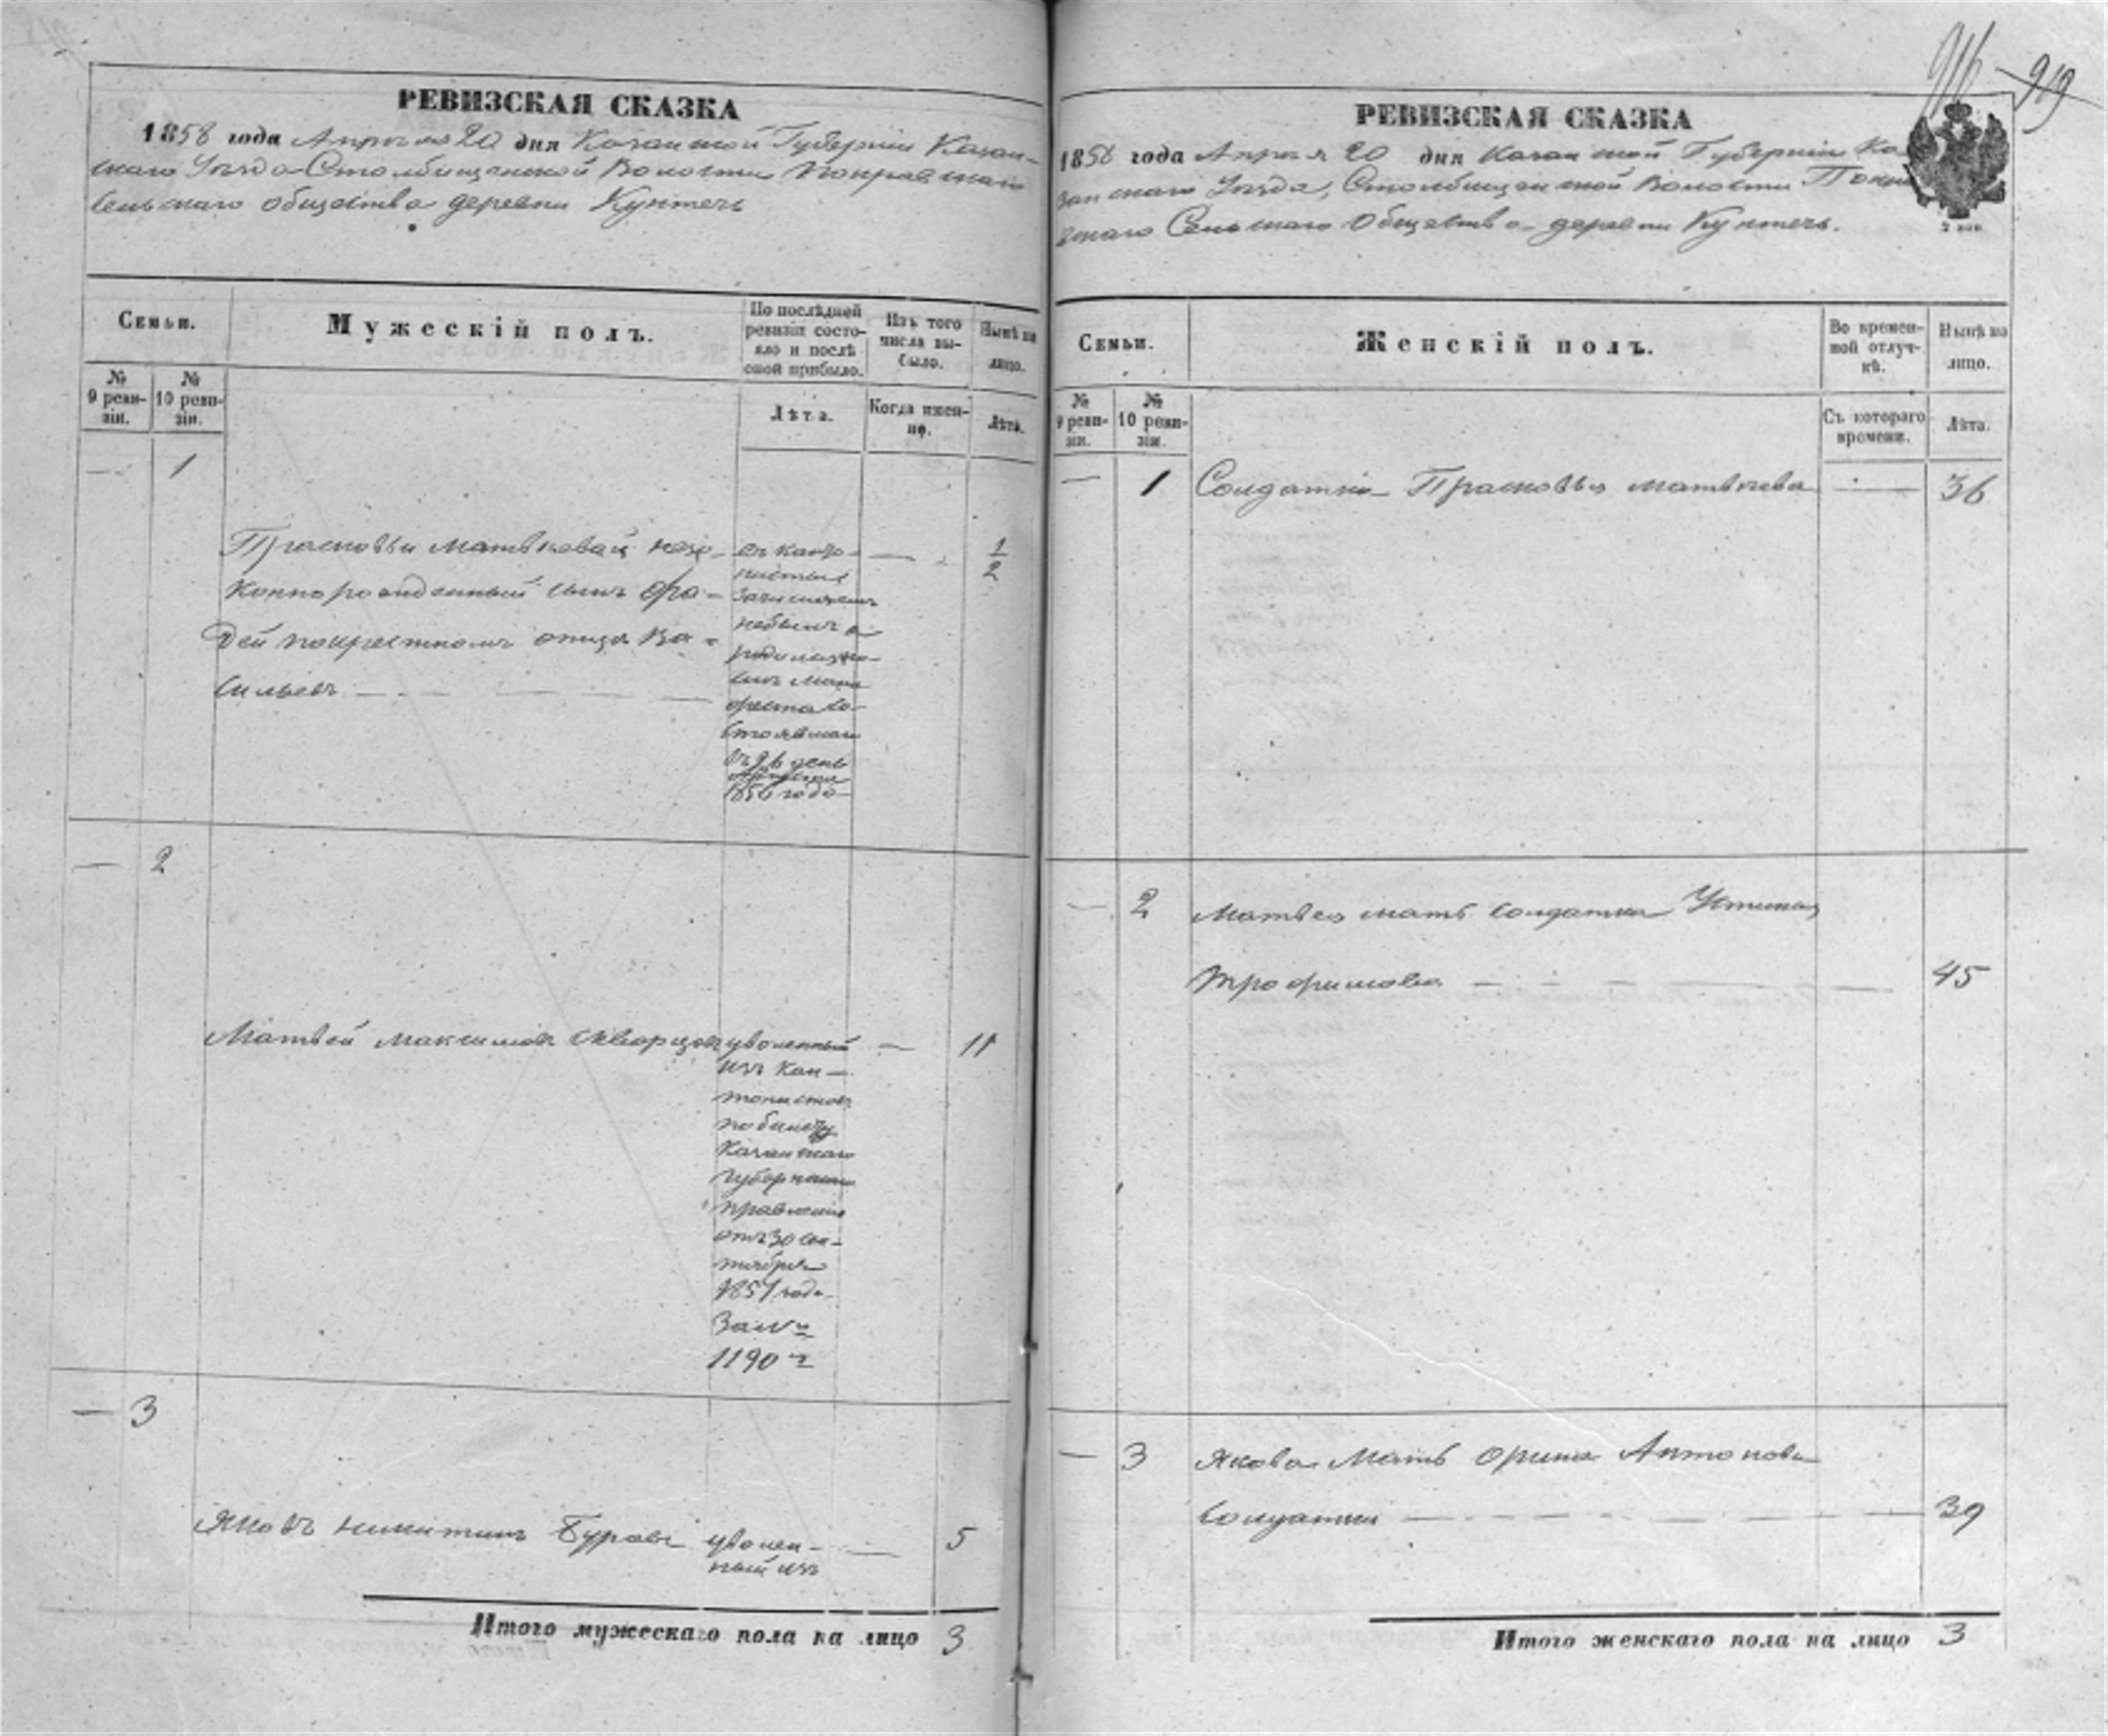 РЕВИЗСКАЯ СКАЗКА
1858 года Апреля 20 дня Казанской Губерніи Казан-
скаго Уезда Столбищенской Волости Покровскаго
сельскаго общества деревни Куктечь
Семьи.
Мужескій полъ.
По послѣдней ревизіи состо-
яло и послѣ оной прибыло.
Изъ того числа вы-
было.
Нынѣ на лицо.
№ 9 реви-
зіи.
№ 10 реви-
зіи.
Лѣта.
Когда имен-
но.
Лѣта.
— 1
Прасковьи Матвѣевой неза-
коннорожденный сынъ Фа-
дей по крестномъ отцѣ Ва-
сильевъ
въ канто-
нисты
зачисленъ
небылъ а
родился по-
слѣ мани-
феста со-
стоявшаго
въ 26 день
1856 года
— 1/2
— 2
Матвей Максимовъ Скворцовъ
уволенный
изъ кан-
тонистовъ
по билету
Казанскаго
Губернскаго
правленія
отъ 30 сен-
тября
1857 года
за №
1190
— 11
— 3
Яковъ Никитинъ Буравъ
уволен-
ный изъ
— 5
Итого мужескаго пола на лицо 3
919
РЕВИЗСКАЯ СКАЗКА
1858 года Апреля 20 дня Казанской Губерніи Ка-
занскаго Уезда, Столбищенской Волости Покро
вскаго Сельскаго Общества деревни Куктечь.
2 коп
Семьи.
Женскій полъ.
Во времен-
ной отлуч-
кѣ.
Нынѣ на лицо.
№ 9 реви-
зіи.
№ 10 реви-
зіи.
Съ котораго времени.
Лѣта.
— 1 Солдатка Прасковья Матвѣева — 36
— 2 Матвея мать солдатка Устинья
Трофимова 45
— 3 Якова Мать Орина Антонова
Солдатка 39
Итого женскаго пола на лицо 3